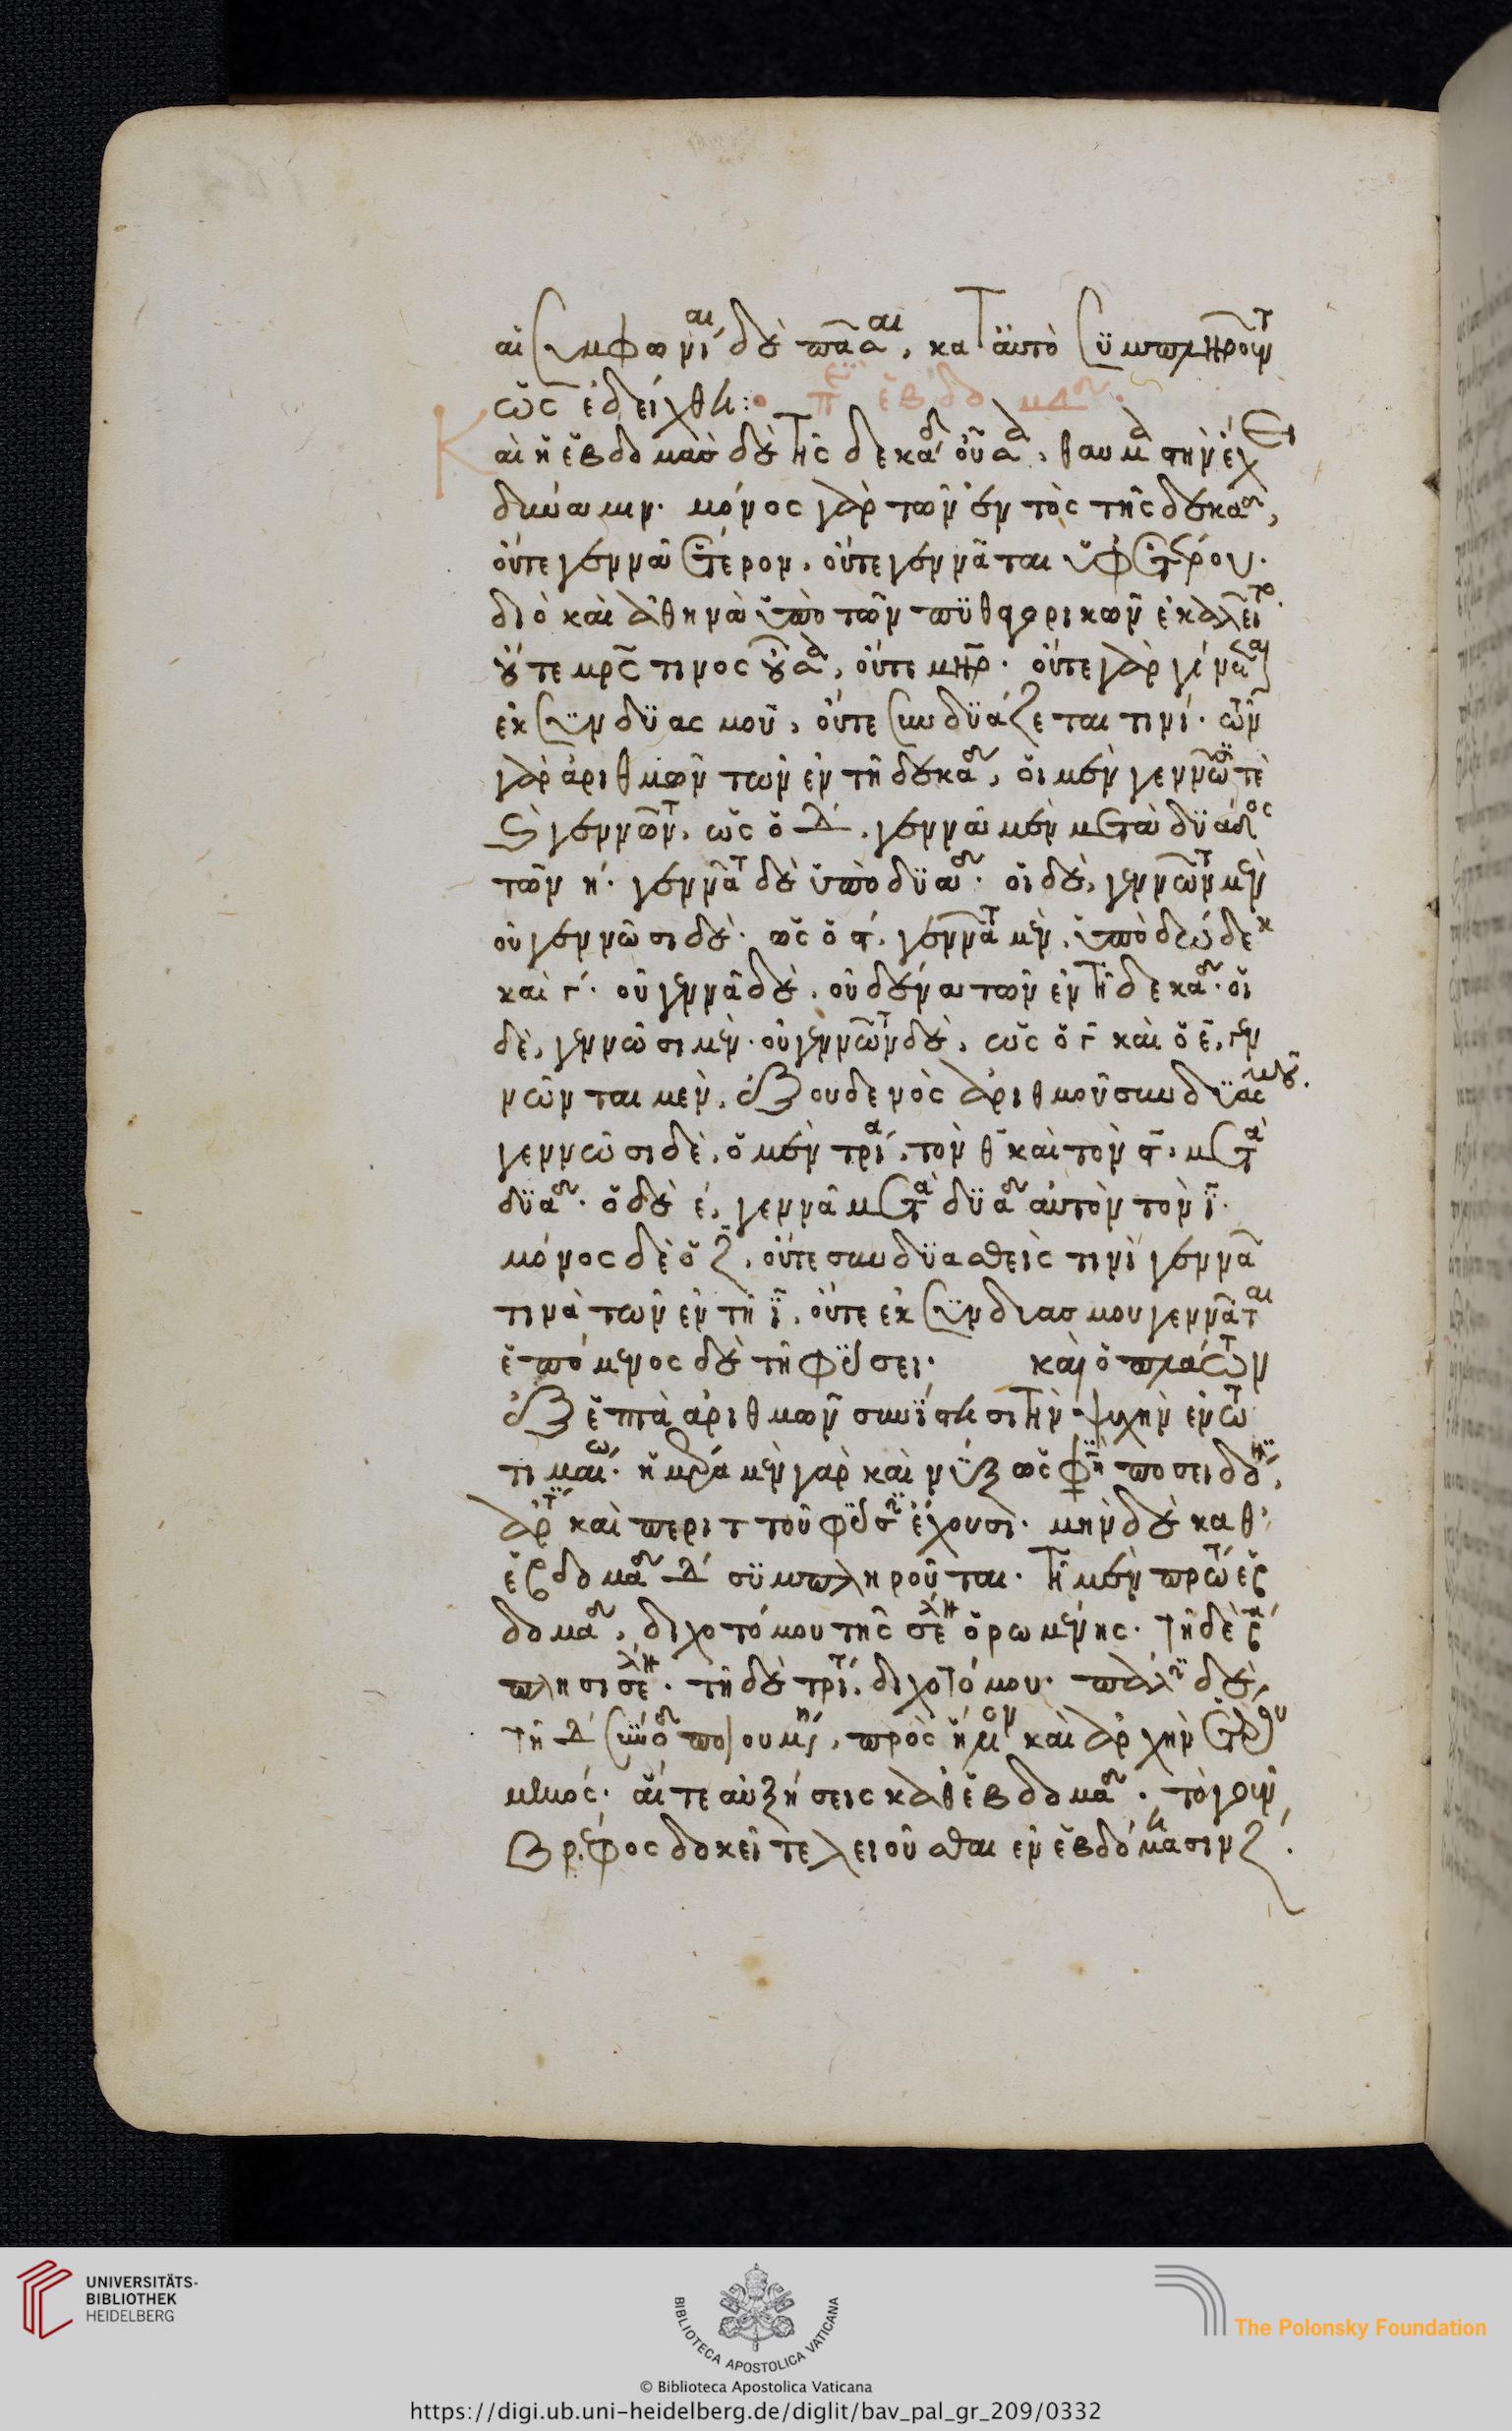 αἱ συμφωνίαι δὲ πᾶσαι, κατ' αὐτὸ συμπληροῦντ
ὡς ἐδείχθη:
π ἑβδομάδος.
Καὶ ἡ ἑβδομὰς δὲ τῆς δεκάδος οὖσα, θαυμαστὴν ἔχει
δύναμιν. μόνος γὰρ τῶν ἐντὸς τῆς δεκάδος,
οὔτε γεννᾶ ἕτερον, οὔτε γεννᾶται ὑφ' ἑτέρου.
διὸ καὶ ἀθηνᾶ ὑπὸ τῶν πυθαγορικῶν ἐκαλεῖτο.
οὔτε μρς τινος οὖσα, οὔτε μηρ. οὔτε γὰρ γίνεται
ἐκ συνδυασμοῦ, οὔτε συνδυάζεται τινί. τῶν
γὰρ ἀριθμῶν τῶν ἐν τῆ δεκάδι, οἱ μὲν γεννῶσί τε
καὶ γεννῶντ, ὡς ὁ δ, γεννᾶ μὲν μετὰ δυάδος
τὸν η. γεννᾶτ δὲ ὑπὸ δυάδος. οἱ δὲ, γεννῶντ μὲν
οὐ γεννῶσι δέ. ὡς ὁ ϛ, γεννᾶτ μὲν, ὑπὸ δύο δὲ κ
καὶ γ. οὐ γεννᾶ δὲ, οὐδένα τῶν ἐν τῆ δεκάδι. οἱ
δὲ, γεννῶσι μὲν. οὐ γεννῶντ δὲ, ὡς ὁ γ καὶ ὁ ε, γεν
νῶνται μὲν, ἐξ οὐδενὸς ἀριθμοῦ συνδυασμοῦ.
γεννῶσι δὲ, ὁ μὲν τρία, τὸν θ καὶ τὸν ϛ, μετὰ
δυάδος. ὁ δὲ ε, γεννᾶ μετὰ δυάδος αὐτὸν τὸν ι.
μόνος δὲ ὁ ζ, οὔτε συνδυασθεὶς τινὶ γεννᾶ
τινὰ τῶν ἐν τῆ ι, οὔτε ἐκ συνδιασμου γεννᾶται
ἑπόμενος δὲ τῆ φύσει. καὶ ὁ πλάτων
ἐξ ἑπτὰ ἀριθμῶν συνίστησι τὴν ψυχὴν ἐν τῶ
τιμαίω. ἡμέρα μὲν γὰρ καὶ νὺξ ὡς φησὶ ποσειδώνιος,
ἀρτίου καὶ περιττοῦ φύσιν ἔχουσι. μὴν δὲ καθ'
ἑβδομάδας δ συμπληροῦται. τῆ μὲν πρώτη ἑβ
δομάδι, διχοτόμου τῆς σελήνης ὁρωμένης. τῆ δὲ β
πλησισελήνου. τῆ δὲ τρίτη, διχοτόμου. πάλιν δὲ,
τῆ δ σύνοδον ποιουμένης, πρὸς ἥλιον καὶ ἀρχὴν ἑτέρου
μηνός. αἵ τε αὐξήσεις καθ' ἑβδομάδα. τὸ γοῦν
βρέφος δοκεῖ τελειοῦσθαι ἐν ἑβδόμασιν ζ.
UNIVERSITÄTS-
BIBLIOTHEK
HEIDELBERG
BIBLIOTECA APOSTOLICA VATICANA
The Polonsky Foundation
© Biblioteca Apostolica Vaticana
https://digi.ub.uni-heidelberg.de/diglit/bav_pal_gr_209/0332